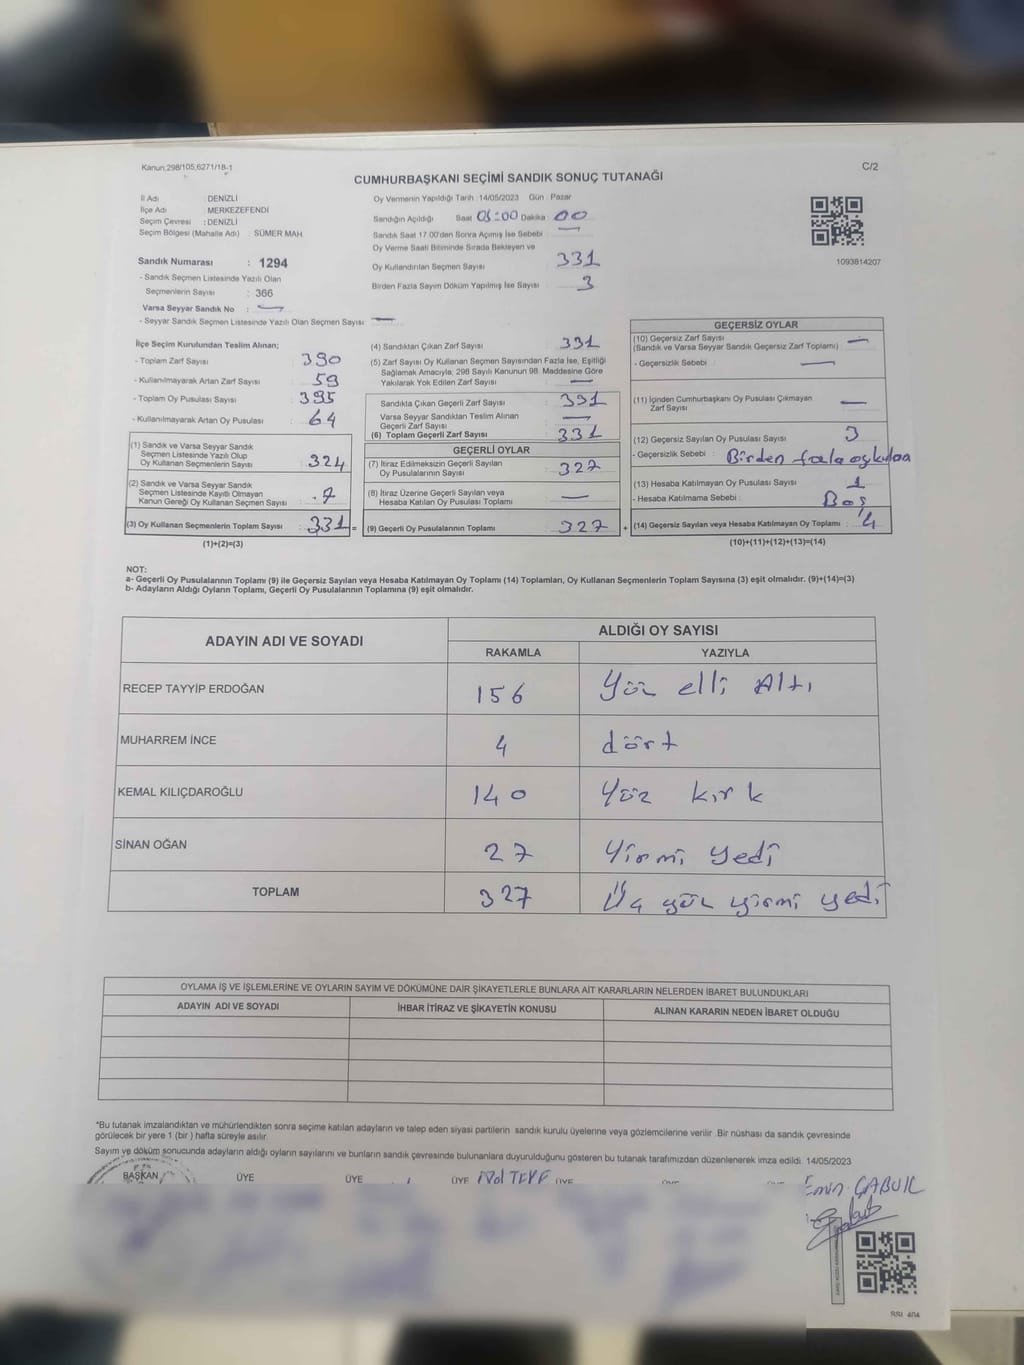 Kanun;298/105,6271/18-1
C/2
CUMHURBAŞKANI SEÇİMİ SANDIK SONUÇ TUTANAĞI
İl Adı : DENİZLİ
İlçe Adı : MERKEZEFENDİ
Seçim Çevresi : DENİZLİ
Seçim Bölgesi (Mahalle Adı) : SÜMER MAH.
Sandık Numarası : 1294
- Sandık Seçmen Listesinde Yazılı Olan
Seçmenlerin Sayısı : 366
Varsa Seyyar Sandık No : —
- Seyyar Sandık Seçmen Listesinde Yazılı Olan Seçmen Sayısı : —
Oy Vermenin Yapıldığı Tarih 14/05/2023 Gün : Pazar
Sandığın Açıldığı Saat 08:00 Dakika 00
Sandık Saat 17.00'den Sonra Açılmış İse Sebebi —
Oy Verme Saati Bitiminde Sırada Bekleyen ve
Oy Kullandırılan Seçmen Sayısı 331
Birden Fazla Sayım Döküm Yapılmış İse Sayısı : 3
1093814207
İlçe Seçim Kurulundan Teslim Alınan;
- Toplam Zarf Sayısı : 390
- Kullanılmayarak Artan Zarf Sayısı : 59
- Toplam Oy Pusulası Sayısı : 395
- Kullanılmayarak Artan Oy Pusulası : 64
(1) Sandık ve Varsa Seyyar Sandık
Seçmen Listesinde Yazılı Olup
Oy Kullanan Seçmenlerin Sayısı : 324
(2) Sandık ve Varsa Seyyar Sandık
Seçmen Listesinde Kayıtlı Olmayan
Kanun Gereği Oy Kullanan Seçmen Sayısı : 7
(3) Oy Kullanan Seçmenlerin Toplam Sayısı : 331 =
(1)+(2)=(3)
(4) Sandıktan Çıkan Zarf Sayısı : 331
(5) Zarf Sayısı Oy Kullanan Seçmen Sayısından Fazla İse, Eşitliği
Sağlamak Amacıyla, 298 Sayılı Kanunun 98. Maddesine Göre
Yakılarak Yok Edilen Zarf Sayısı : —
Sandıkta Çıkan Geçerli Zarf Sayısı : 331
Varsa Seyyar Sandıktan Teslim Alınan
Geçerli Zarf Sayısı : —
(6) Toplam Geçerli Zarf Sayısı : 331
GEÇERLİ OYLAR
(7) İtiraz Edilmeksizin Geçerli Sayılan
Oy Pusulalarının Sayısı : 327
(8) İtiraz Üzerine Geçerli Sayılan veya
Hesaba Katılan Oy Pusulası Toplamı : —
(9) Geçerli Oy Pusulalarının Toplamı : 327 +
GEÇERSİZ OYLAR
(10) Geçersiz Zarf Sayısı
(Sandık ve Varsa Seyyar Sandık Geçersiz Zarf Toplamı) : —
- Geçersizlik Sebebi : —
(11) İçinden Cumhurbaşkanı Oy Pusulası Çıkmayan
Zarf Sayısı : —
(12) Geçersiz Sayılan Oy Pusulası Sayısı : 3
- Geçersizlik Sebebi : Birden fazla oy kullan
(13) Hesaba Katılmayan Oy Pusulası Sayısı : 1
- Hesaba Katılmama Sebebi : Boş
(14) Geçersiz Sayılan veya Hesaba Katılmayan Oy Toplamı : 4
(10)+(11)+(12)+(13)=(14)
NOT:
a- Geçerli Oy Pusulalarının Toplamı (9) ile Geçersiz Sayılan veya Hesaba Katılmayan Oy Toplamı (14) Toplamları, Oy Kullanan Seçmenlerin Toplam Sayısına (3) eşit olmalıdır. (9)+(14)=(3)
b- Adayların Aldığı Oyların Toplamı, Geçerli Oy Pusulalarının Toplamına (9) eşit olmalıdır.
ADAYIN ADI VE SOYADI ALDIĞI OY SAYISI
RAKAMLA YAZIYLA
RECEP TAYYİP ERDOĞAN 156 Yüz elli Altı
MUHARREM İNCE 4 dört
KEMAL KILIÇDAROĞLU 140 Yüz kırk
SİNAN OĞAN 27 Yirmi yedi
TOPLAM 327 Üç yüz yirmi yedi
OYLAMA İŞ VE İŞLEMLERİNE VE OYLARIN SAYIM VE DÖKÜMÜNE DAİR ŞİKAYETLERLE BUNLARA AİT KARARLARIN NELERDEN İBARET BULUNDUKLARI
ADAYIN ADI VE SOYADI İHBAR İTİRAZ VE ŞİKAYETİN KONUSU ALINAN KARARIN NEDEN İBARET OLDUĞU
*Bu tutanak imzalandıktan ve mühürlendikten sonra seçime katılan adayların ve talep eden siyasi partilerin sandık kurulu üyelerine veya gözlemcilerine verilir. Bir nüshası da sandık çevresinde
görülecek bir yere 1 (bir ) hafta süreyle asılır.
Sayım ve döküm sonucunda adayların aldığı oyların sayılarını ve bunların sandık çevresinde bulunanlara duyurulduğunu gösteren bu tutanak tarafımızdan düzenlenerek imza edildi. 14/05/2023
BAŞKAN ÜYE ÜYE ÜYE ÜYE
Emin ÇABUK